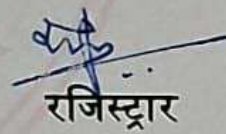 रजिस्ट्रार